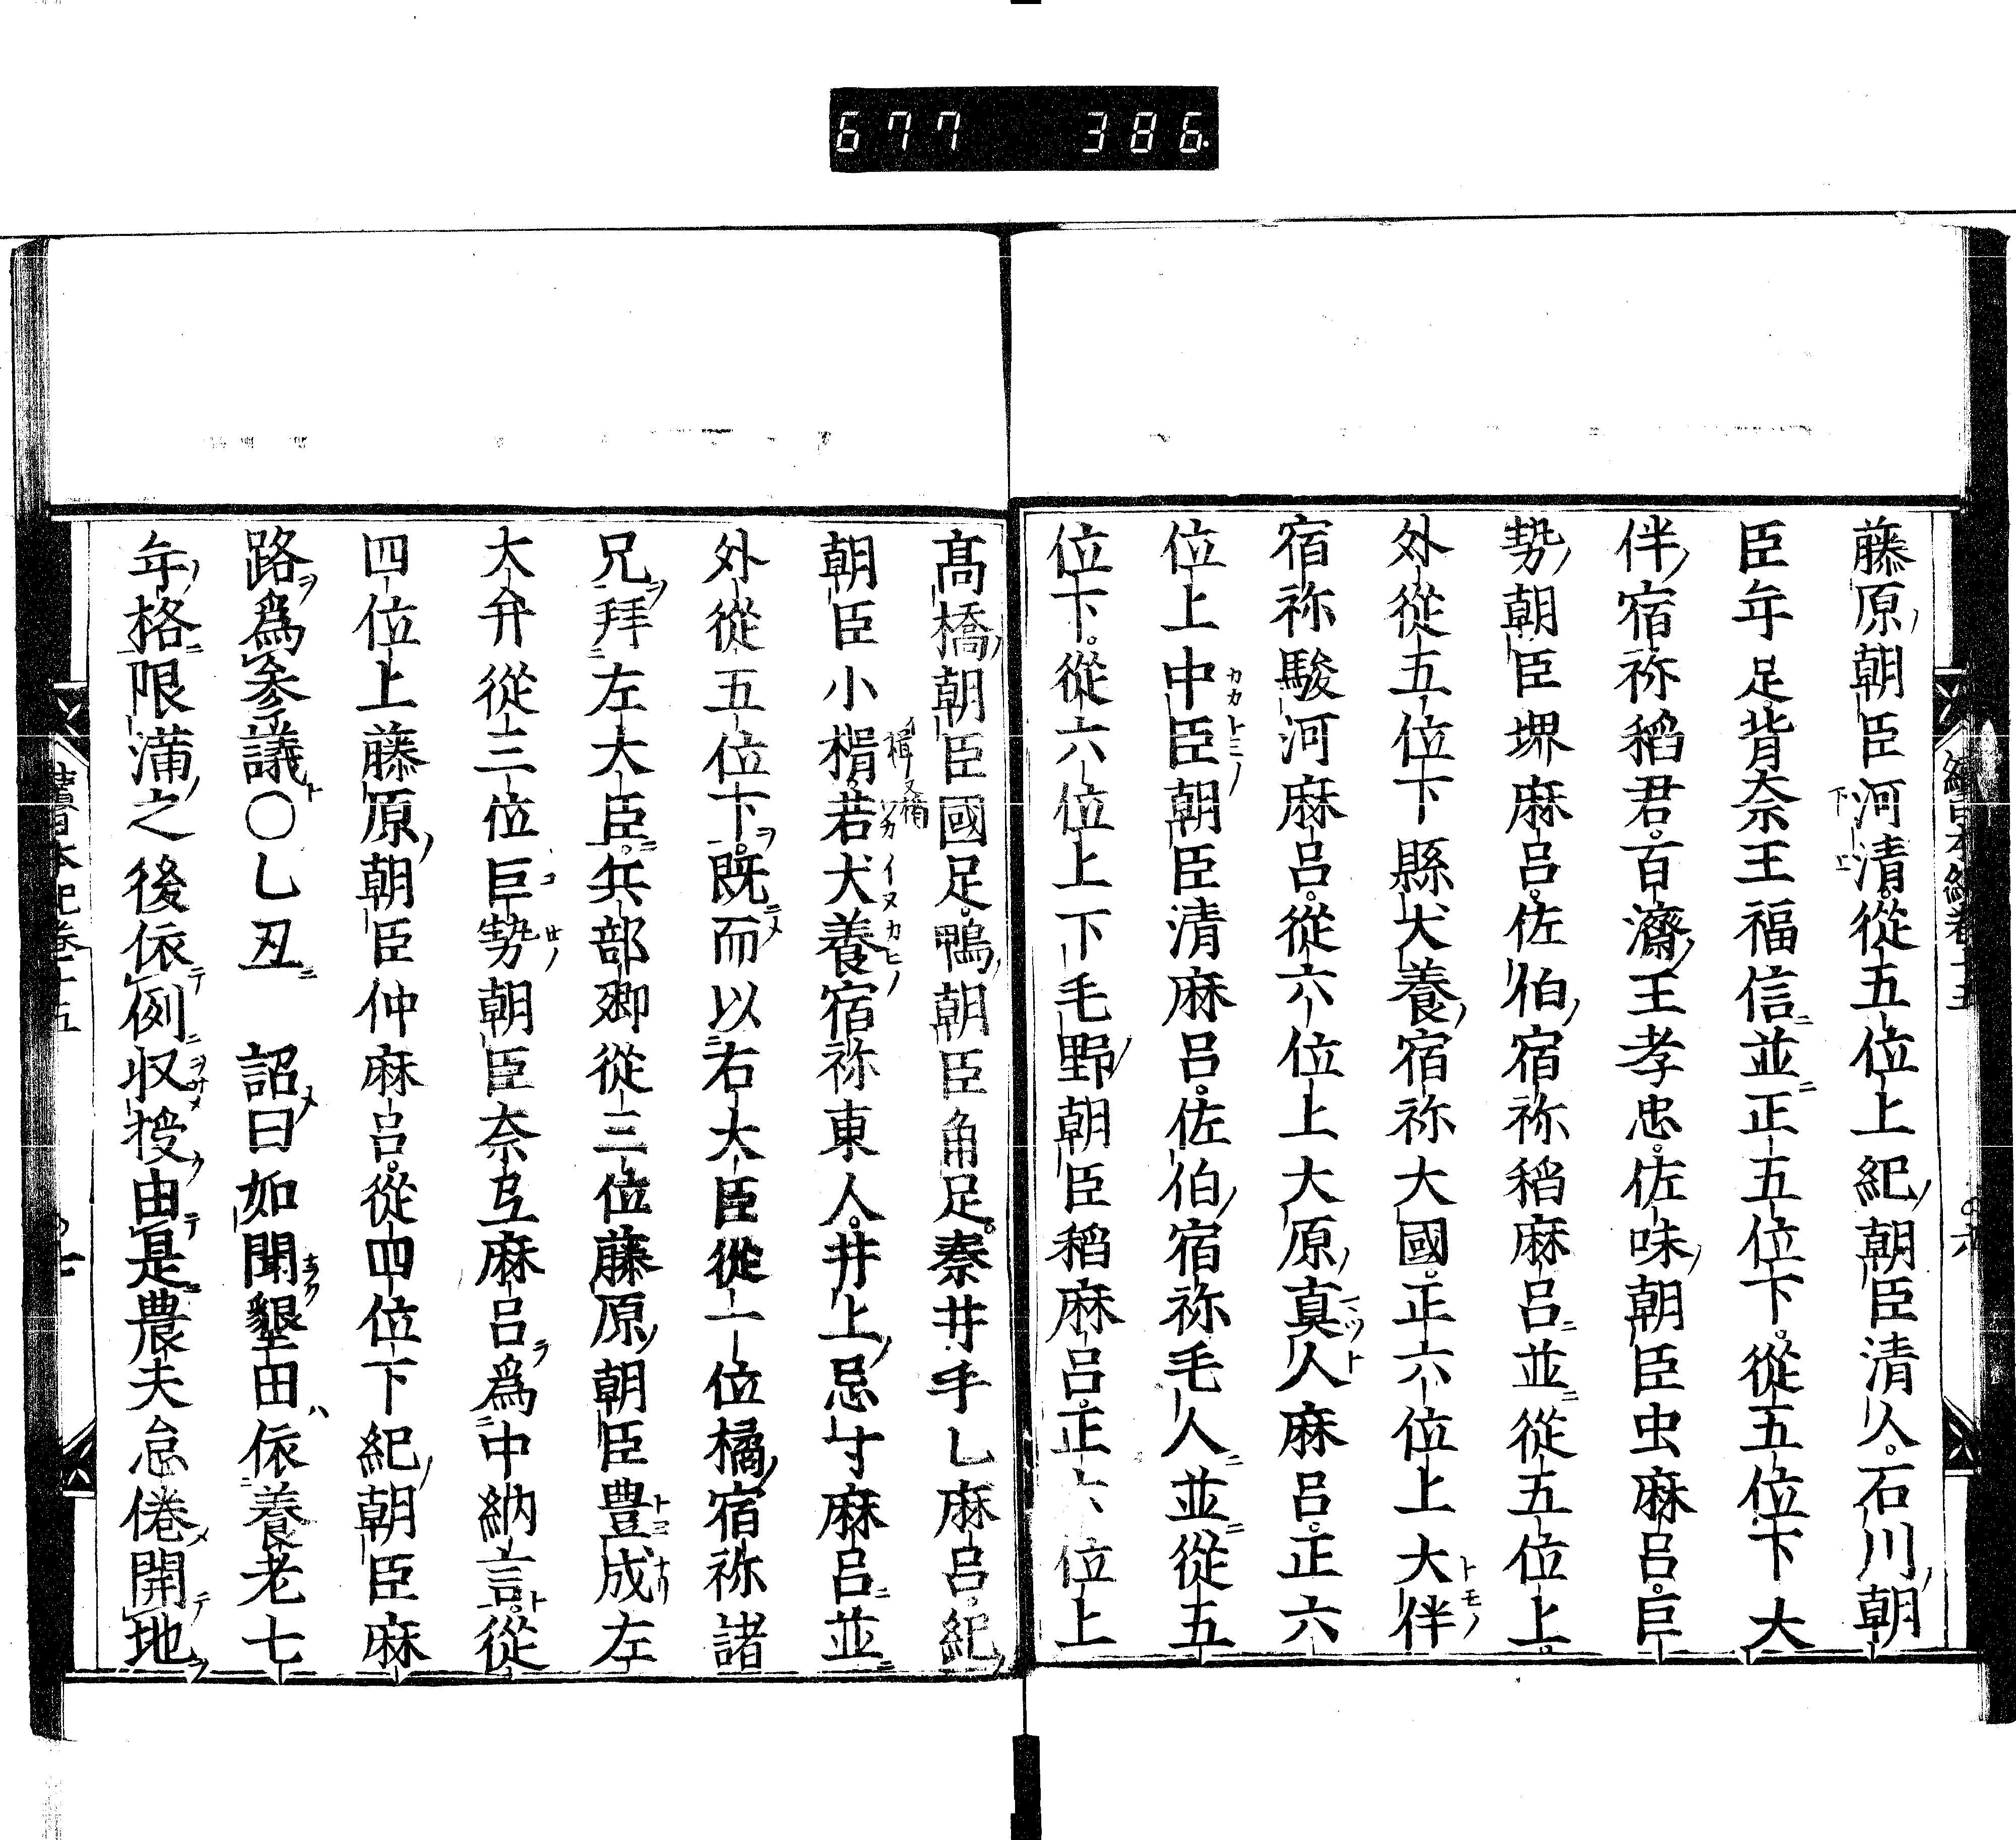 677 386.
藤原朝臣河清。從五位上紀朝臣清人。石川朝
臣年足背奈王福信並正五位下。從五位下大
伴宿祢稻君。百濟王孝忠。佐味朝臣虫麻呂。巨
勢朝臣堺麻呂。佐伯宿祢稻麻呂並從五位上。
外從五位下縣犬養宿祢大國。正六位上大伴
宿祢駿河麻呂。從六位上大原真人麻呂。正六
位上中臣朝臣清麻呂。佐伯宿祢毛人並從五
位下。從六位上下毛野朝臣稻麻呂。正六位上
髙橋朝臣國足。鴨朝臣角足。秦井手乚麻呂。紀
朝臣小楫。若犬養宿祢東人。井上忌寸麻呂並
外從五位下。既而以右大臣從一位橘宿祢諸
兄拜左大臣。兵部卿從三位藤原朝臣豊成左
大弁從三位巨勢朝臣奈弖麻呂爲中納言。從
四位上藤原朝臣仲麻呂。從四位下紀朝臣麻
路爲參議〇乚丑 詔曰如聞墾田依養老七
年格限滿之後依例収授由是農夫怠倦開地